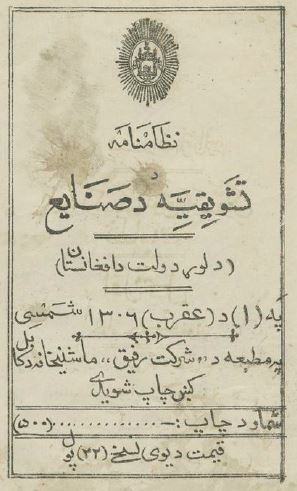 نظامنامه
تشویقیّه د صنایع
(د لوی دولت د افغانستان)
په (۱) د (عقرب) ۱۳۰۶ شمسی
په مطبعه د «شرکت رفیق» ماشینخانه د کابل
کښ چاپ شوی
شمار د چاپ :- .............. (۵۰۰)
قیمت د یوی نسخی (۳۲) پول